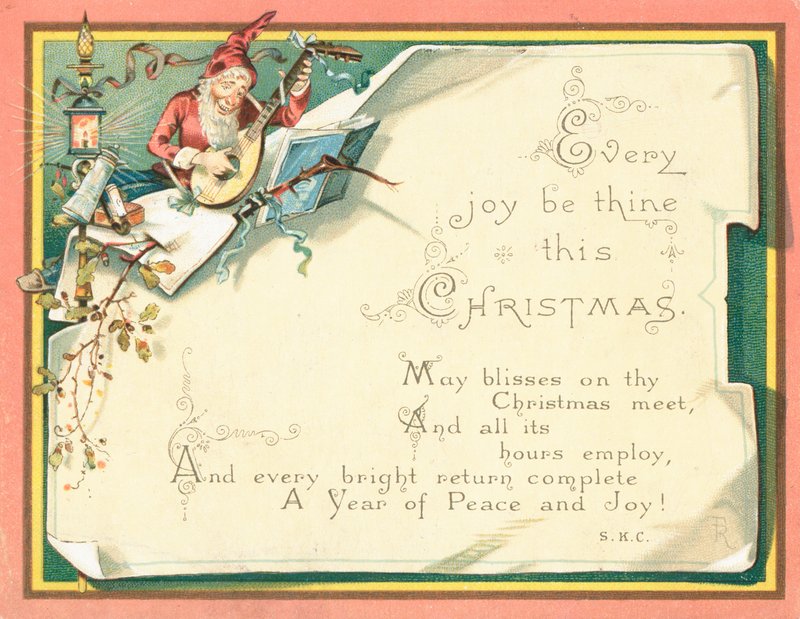 Every
joy be thine
this
Christmas.
May blisses on thy
Christmas meet,
And all its
hours employ,
And every bright return complete
A Year of Peace and Joy!
S.K.C.